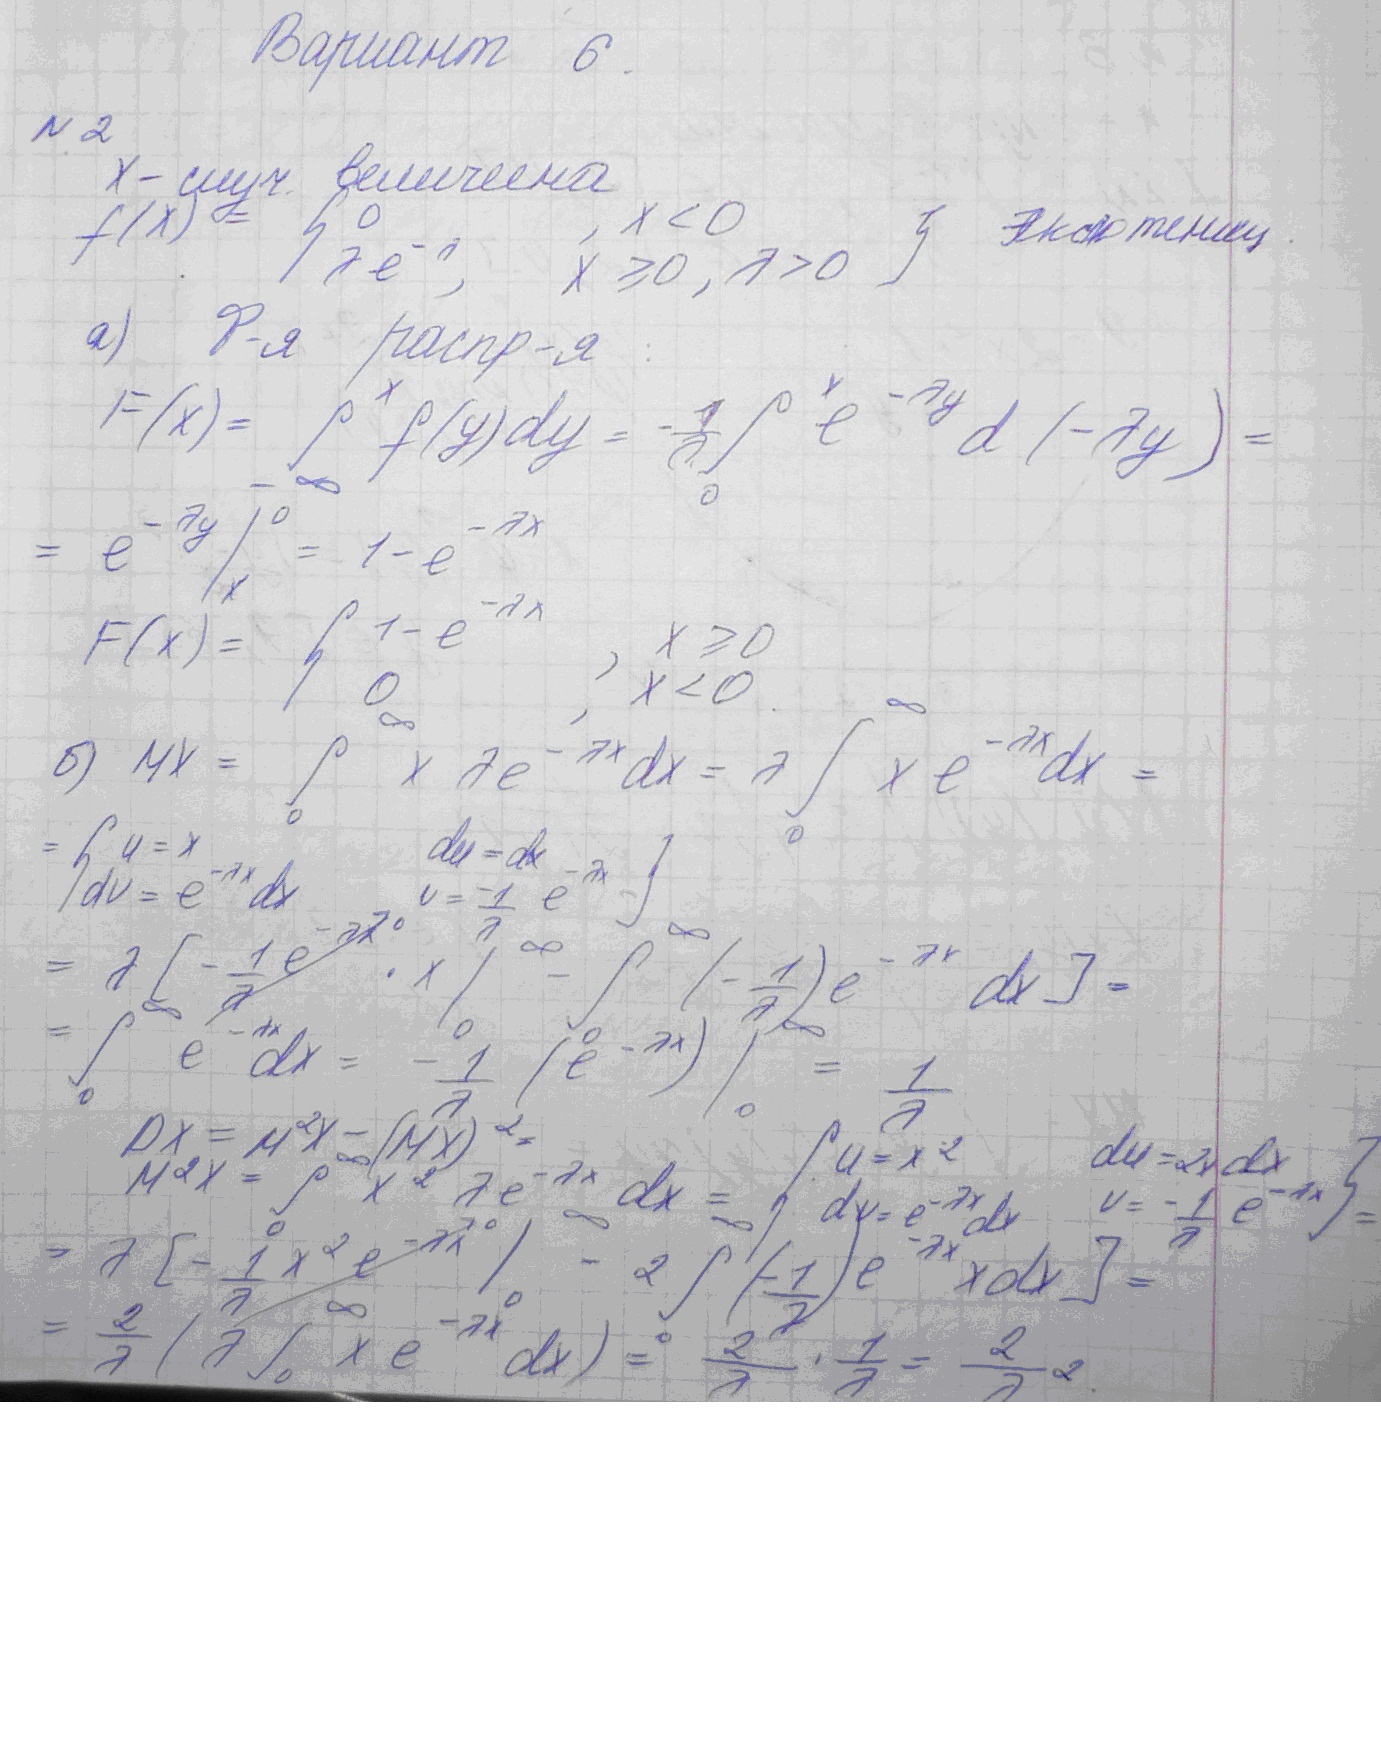 Вариант 6.
N.2
X - случ. величина
f(x) = { 0 , x < 0
λe^-λ, x ≥ 0, λ > 0 } Экспоненц.
а) Ф-я распр-я :
F(x) = ∫_{-∞}^{x} f(y)dy = -1/λ ∫_0^x e^{-λy} d(-λy) =
= e^{-λy} |_x^0 = 1 - e^{-λx}
F(x) = { 1 - e^{-λx} , x ≥ 0
0 , x < 0.
б) MX = ∫_0^∞ x λe^{-λx} dx = λ ∫_0^∞ x e^{-λx} dx =
= { u = x du = dx
dv = e^{-λx} dx v = -1/λ e^{-λx} }
= λ [ -1/λ e^{-λx} · x |_0^∞ - ∫_0^∞ (-1/λ) e^{-λx} dx ] =
= ∫_0^∞ e^{-λx} dx = -1/λ (e^{-λx}) |_0^∞ = 1/λ
DX = M²X - (MX)² =
M²X = ∫_0^∞ x² λe^{-λx} dx = { u = x² du = 2x dx
dv = e^{-λx} dx v = -1/λ e^{-λx} } =
= λ [ -1/λ x² e^{-λx} |_0^∞ - 2 ∫_0^∞ (-1/λ) e^{-λx} x dx ] =
= 2/λ ( λ ∫_0^∞ x e^{-λx} dx ) = 2/λ · 1/λ = 2/λ².